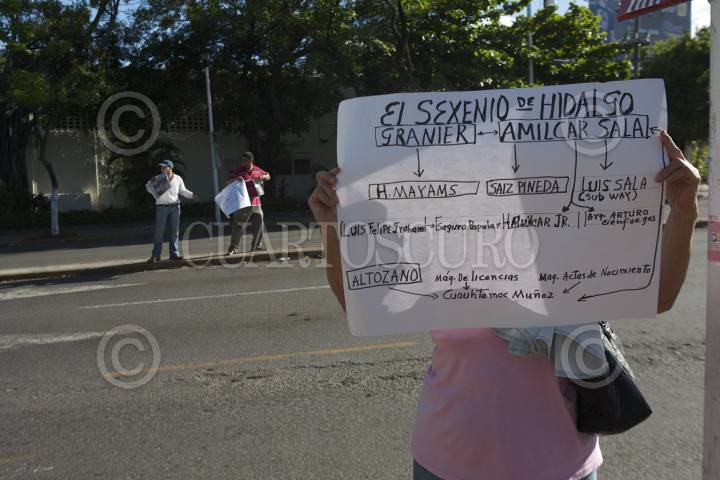 EL SEXENIO DE HIDALGO
GRANIER ↔ AMILCAR SALA
H. MAYAMS SAIZ PINEDA LUIS SALA
(SUB WAY)
LUIS FELIPE Graham → Seguro Popular HAMILCAR JR. Arq. ARTURO
cienfuegos
ALTOZANO Máq. De licencias Maq. Actas de Nacimiento
Cuauhtemoc Muñoz
© CUARTOSCURO ©
© ©